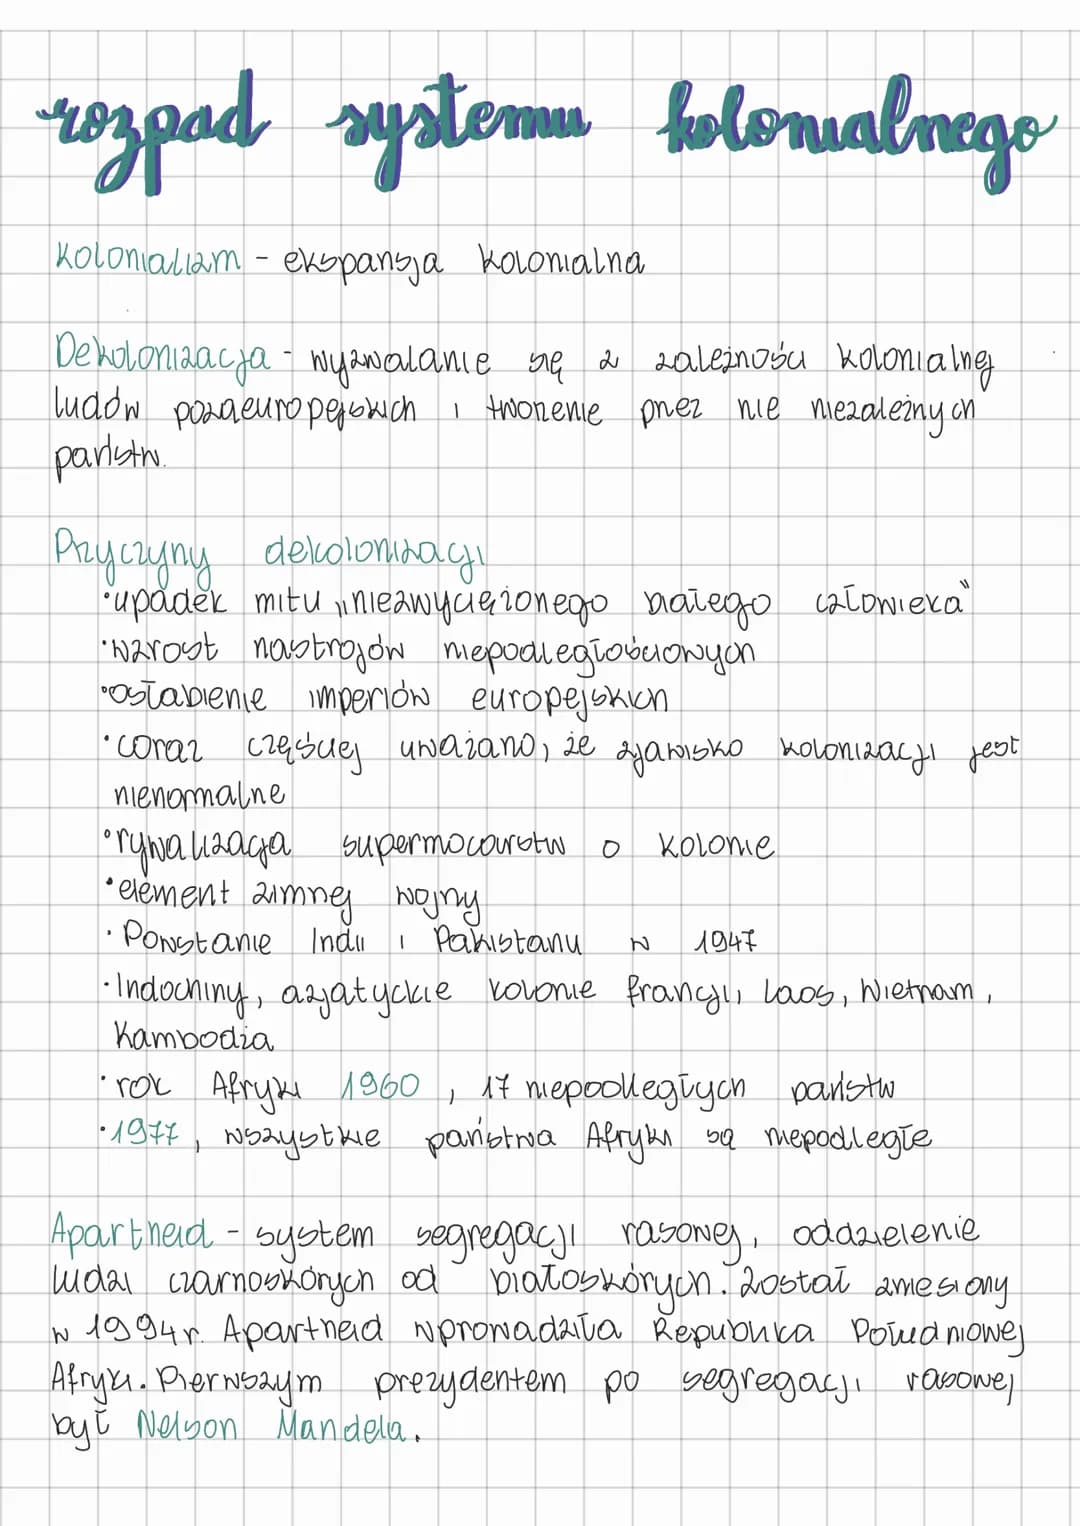 rozpad systemu kolonialnego
Kolonializm - ekspansja kolonialna
Dekolonizacja - wyzwalanie się z zależności kolonialnej
ludów pozaeuropejskich i tworzenie przez nie niezależnych
państw.
Przyczyny dekolonizacji
•upadek mitu „niezwyciężonego białego człowieka"
•wzrost nastrojów niepodległościowych
•osłabienie imperiów europejskich
•coraz częściej uważano, że zjawisko kolonizacji jest
nienormalne
•rywalizacja supermocarstw o kolonie
•element zimnej wojny
•Powstanie Indii i Pakistanu w 1947
•Indochiny, azjatyckie kolonie francji, Laos, Wietnam,
Kambodża
•rok Afryki 1960, 17 niepodległych państw
•1977, wszystkie państwa Afryki są niepodległe
Apartheid - system segregacji rasowej, oddzielenie
ludzi czarnoskórych od białoskórych. Został zniesiony
w 1994r. Apartheid wprowadziła Republika Południowej
Afryki. Pierwszym prezydentem po segregacji rasowej
był Nelson Mandela.